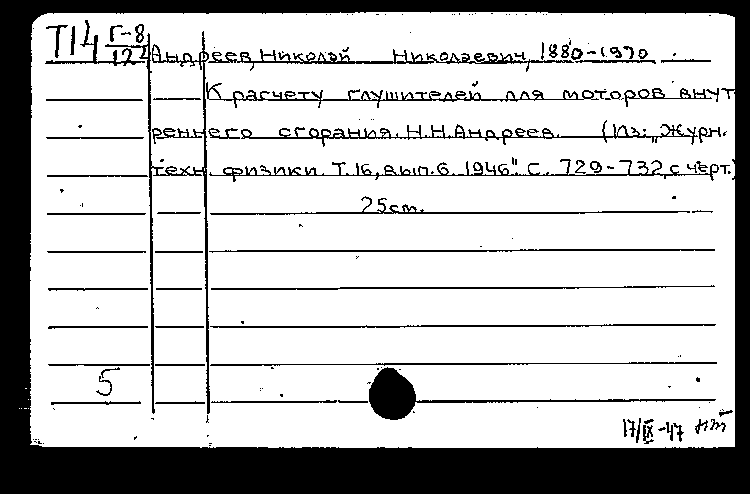 Т14 Г-8
122 Андреев, Николай Николаевич, 1880-1970
К расчету глушителей для моторов внут
реннего сгорания. Н.Н.Андреев. (Из: „Журн.
техн. физики. Т. 16, вып. 6. 1946". С. 729-732, с черт.)
25см.
5
17/IX-47